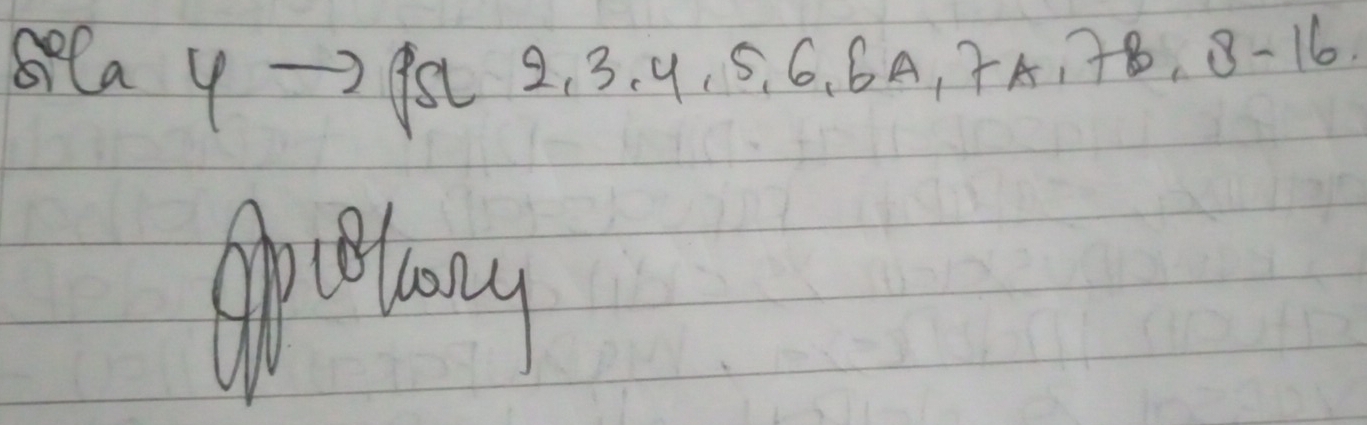 Sila 4 → psl 2, 3, 4, 5, 6, 6A, 7A, 7B, 8-16.